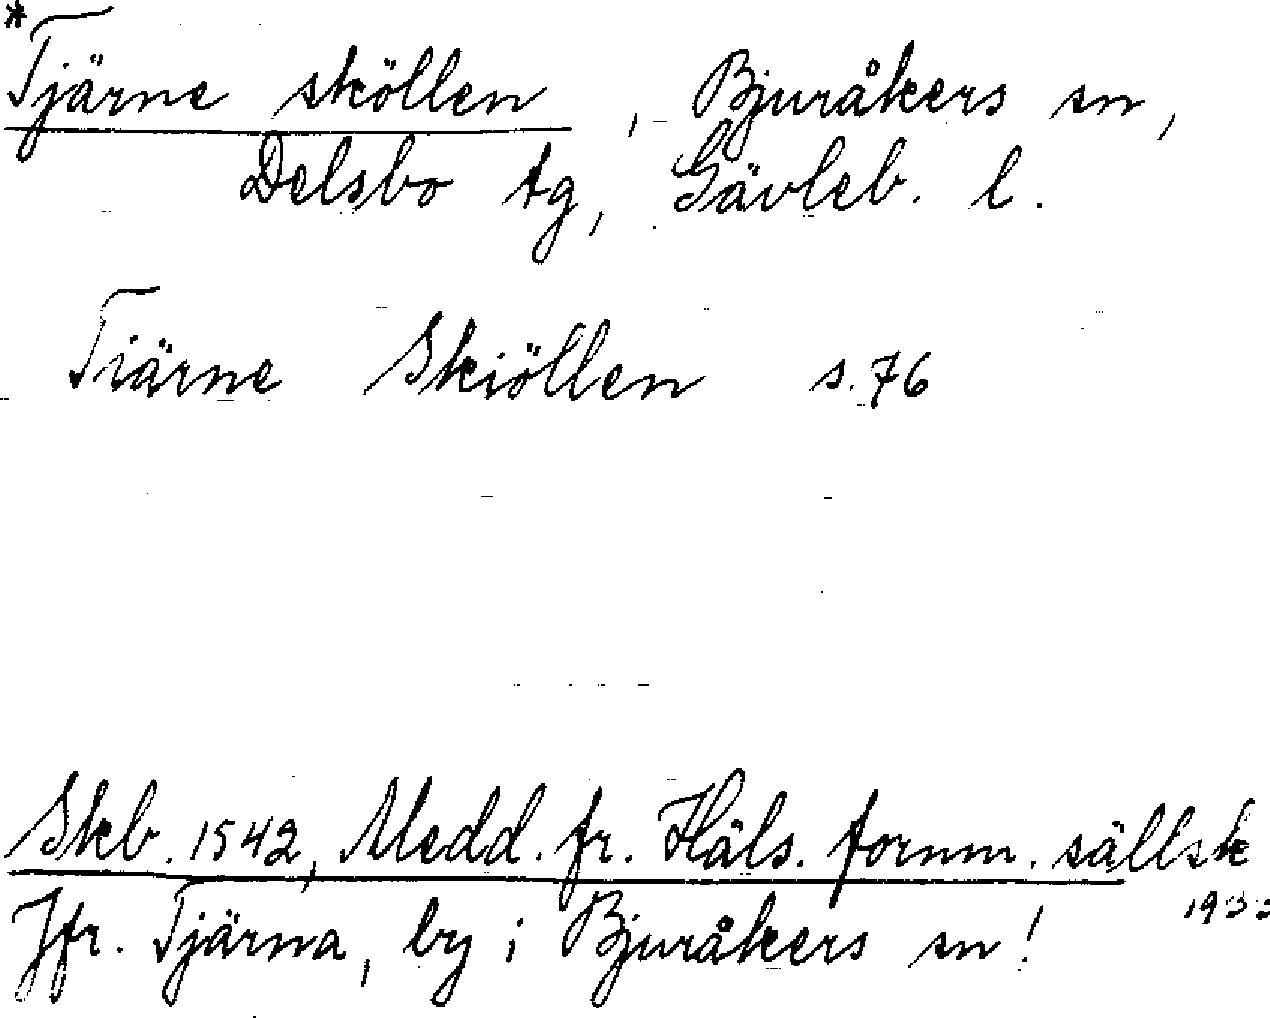 *Tjärne sköllen, Bjuråkers sn,
Delsbo tg, Gävleb. l.
Tiärne Skiöllen s. 76
Skb. 1542, Medd. fr. Häls. fornm. sällsk
Jfr. Tjärna, by i Bjuråkers sn!